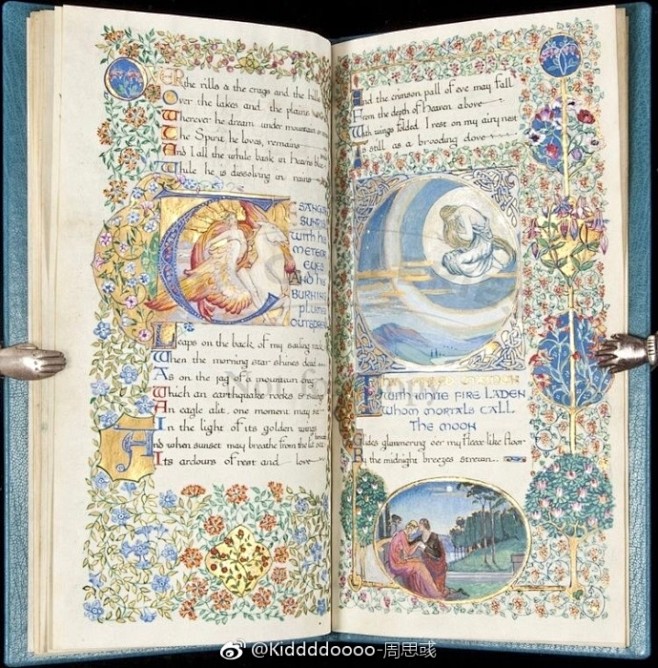 OVER the rills & the crags and the hills
Over the lakes and the plains
Wherever he dream under mountain or
The Spirit he loves, remains
And I all the while bask in heavens blue
While he is dissolving in rains
THE SANGUINE
SUNRISE
WITH HIS
METEOR
EYES
AND HIS
BURNING
PLUMES
OUTSPREAD
Leaps on the back of my sailing rack
When the morning star shines dead
As on the jag of a mountain crag
Which an earthquake rocks & swings
An eagle alit, one moment may sit
In the light of its golden wings
And when sunset may breathe from the lit sea beneath
Its ardours of rest and love
And the crimson pall of eve may fall
From the depth of heaven above
With wings folded I rest on my airy nest
As still as a brooding dove
MAIDEN
WITH WHITE FIRE LADEN
WHOM MORTALS CALL
THE MOON
Glides glimmering oer my fleece like floor
By the midnight breezes strewn
@Kiddddoooo-周思彧